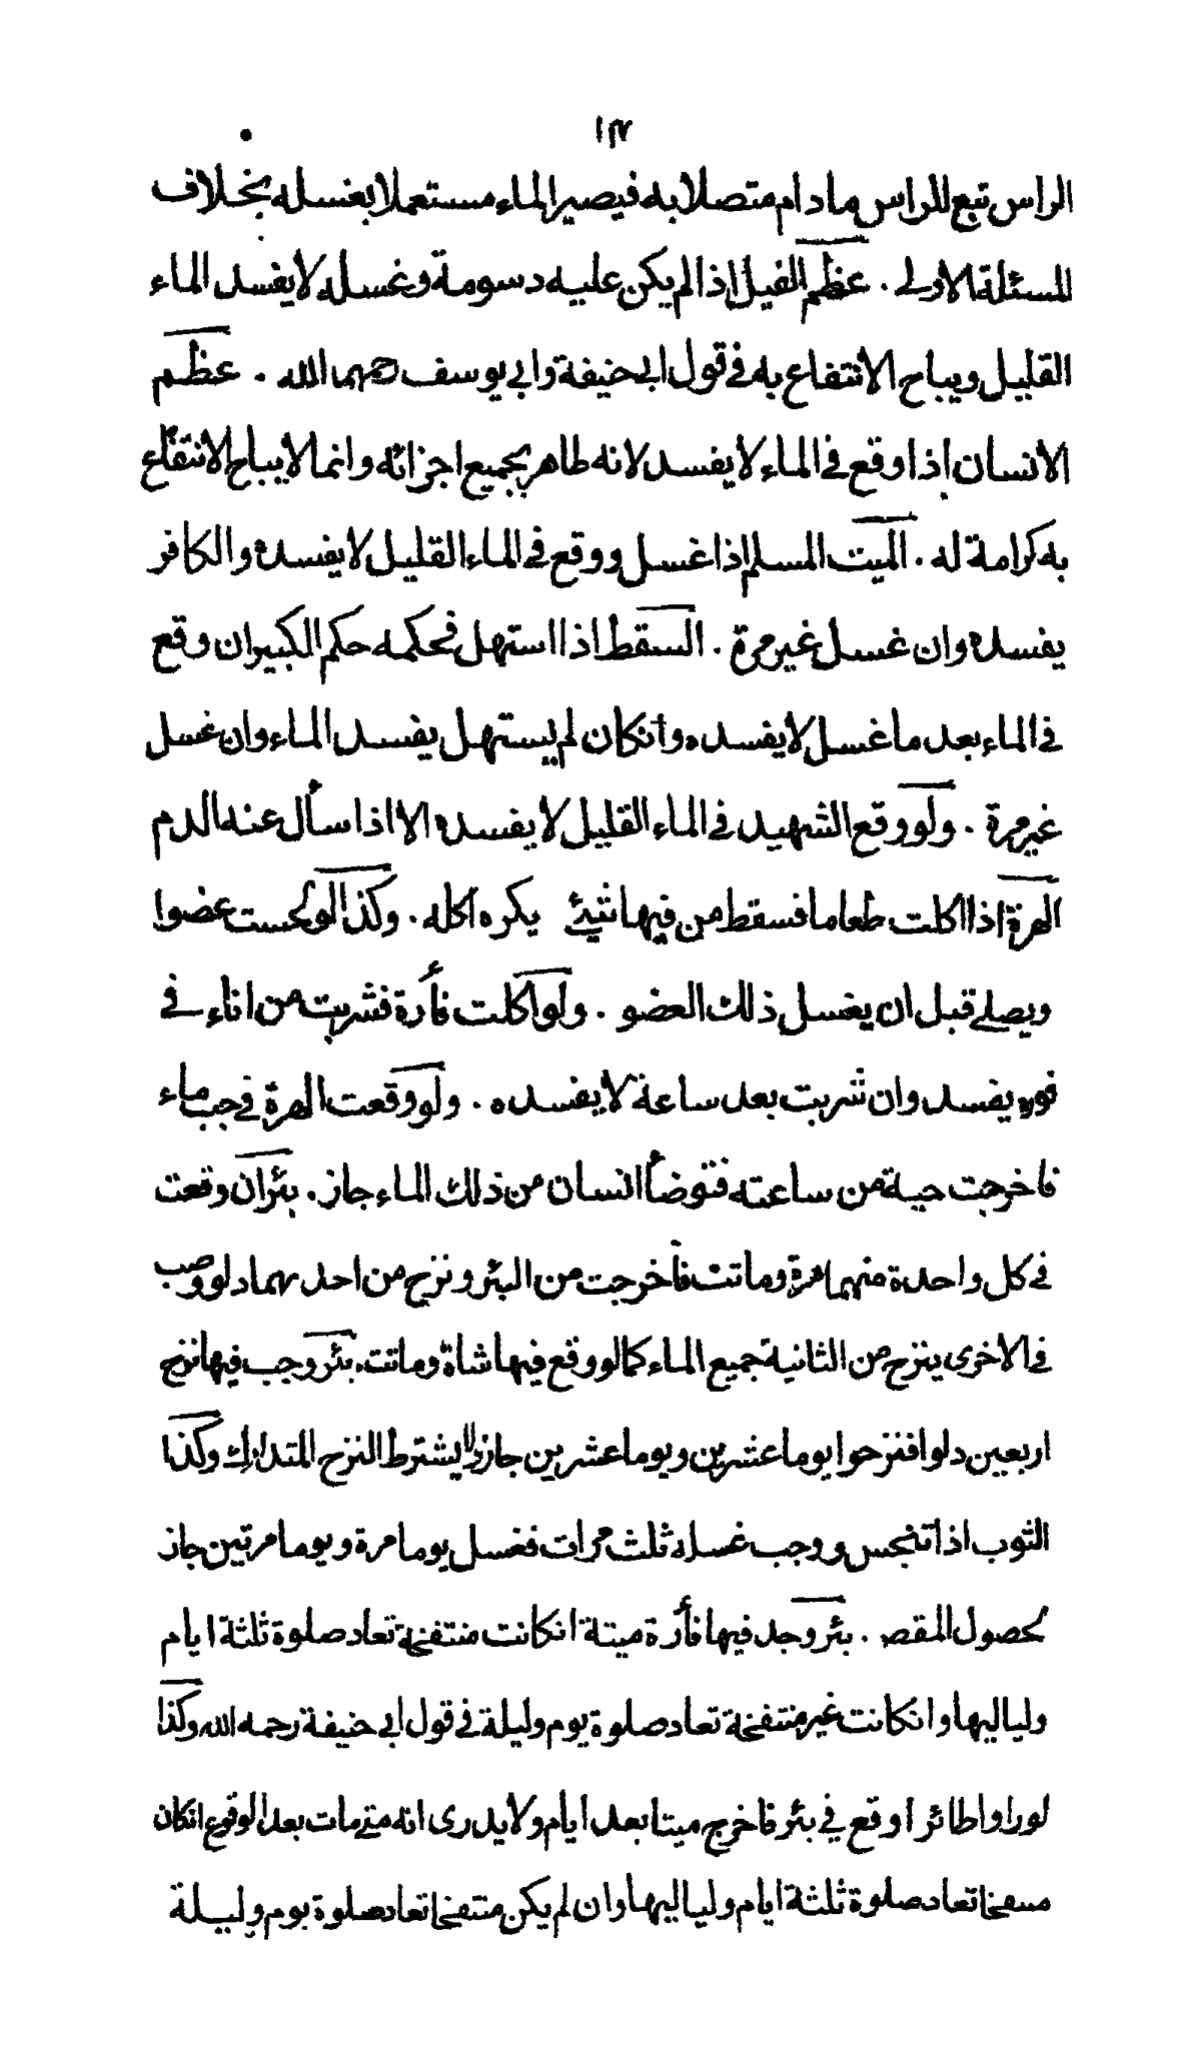 الراس تبع للراس مادام متصلا به فيصير الماء مستعملا بغسله بخلاف
المسئلة الاولى . عظم الفيل اذا لم يكن عليه دسومة وغسله لا يفسد الماء
القليل ويباح الانتفاع به في قول ابي حنيفة وابي يوسف رحمهما الله . عظم
الانسان اذا وقع في الماء لا يفسد لانه طاهر بجميع اجزائه وانما لا يباح الانتفاع
به كرامة له . الميت المسلم اذا غسل ووقع في الماء القليل لا يفسده والكافر
يفسده وان غسل غير مرة . السقط اذا استهل فحكمه حكم الكبير ان وقع
في الماء بعد ما غسل لا يفسده وانكان لم يستهل يفسد الماء وان غسل
غير مرة . ولو وقع الشهيد في الماء القليل لا يفسده الا اذا سأل عنه الدم
الهرة اذا اكلت طعاما فسقط من فيها شيئ يكره اكله . وكذا لو لحست عضوا
ويصلي قبل ان يغسل ذلك العضو . ولو اكلت فأرة فشربت من اناء في
فوره يفسد وان شربت بعد ساعة لا يفسده . ولو وقعت الهرة في جب ماء
فاخرجت حية من ساعته فتوضأ انسان من ذلك الماء جاز . بئران وقعت
في كل واحدة منهما هرة وماتت فأخرجت من البئر ونزح من احدهما دلو وصب
في الاخرى ينزح من الثانية جميع الماء كما لو وقع فيها شاة وماتت . بئر وجب فيها نزح
اربعين دلوا فنزحوا يوما عشرين ويوما عشرين جاز ولا يشترط النزح المتدارك وكذا
الثوب اذا تنجس ووجب غسله ثلث مرات فغسل يوما مرة ويوما مرتين جاز
لحصول المقص . بئر وجد فيها فأرة ميتة انكانت منتفخة تعاد صلوة ثلثة ايام
ولياليها وانكانت غير منتفخة تعاد صلوة يوم وليلة في قول ابي حنيفة رحمه الله وكذا
لو راوا طائرا وقع في بئر فاخرج ميتا بعد ايام ولا يدرى انه متى مات بعد الوقوع انكان
منتفخا تعاد صلوة ثلثة ايام ولياليها وان لم يكن منتفخا تعاد صلوة يوم وليلة